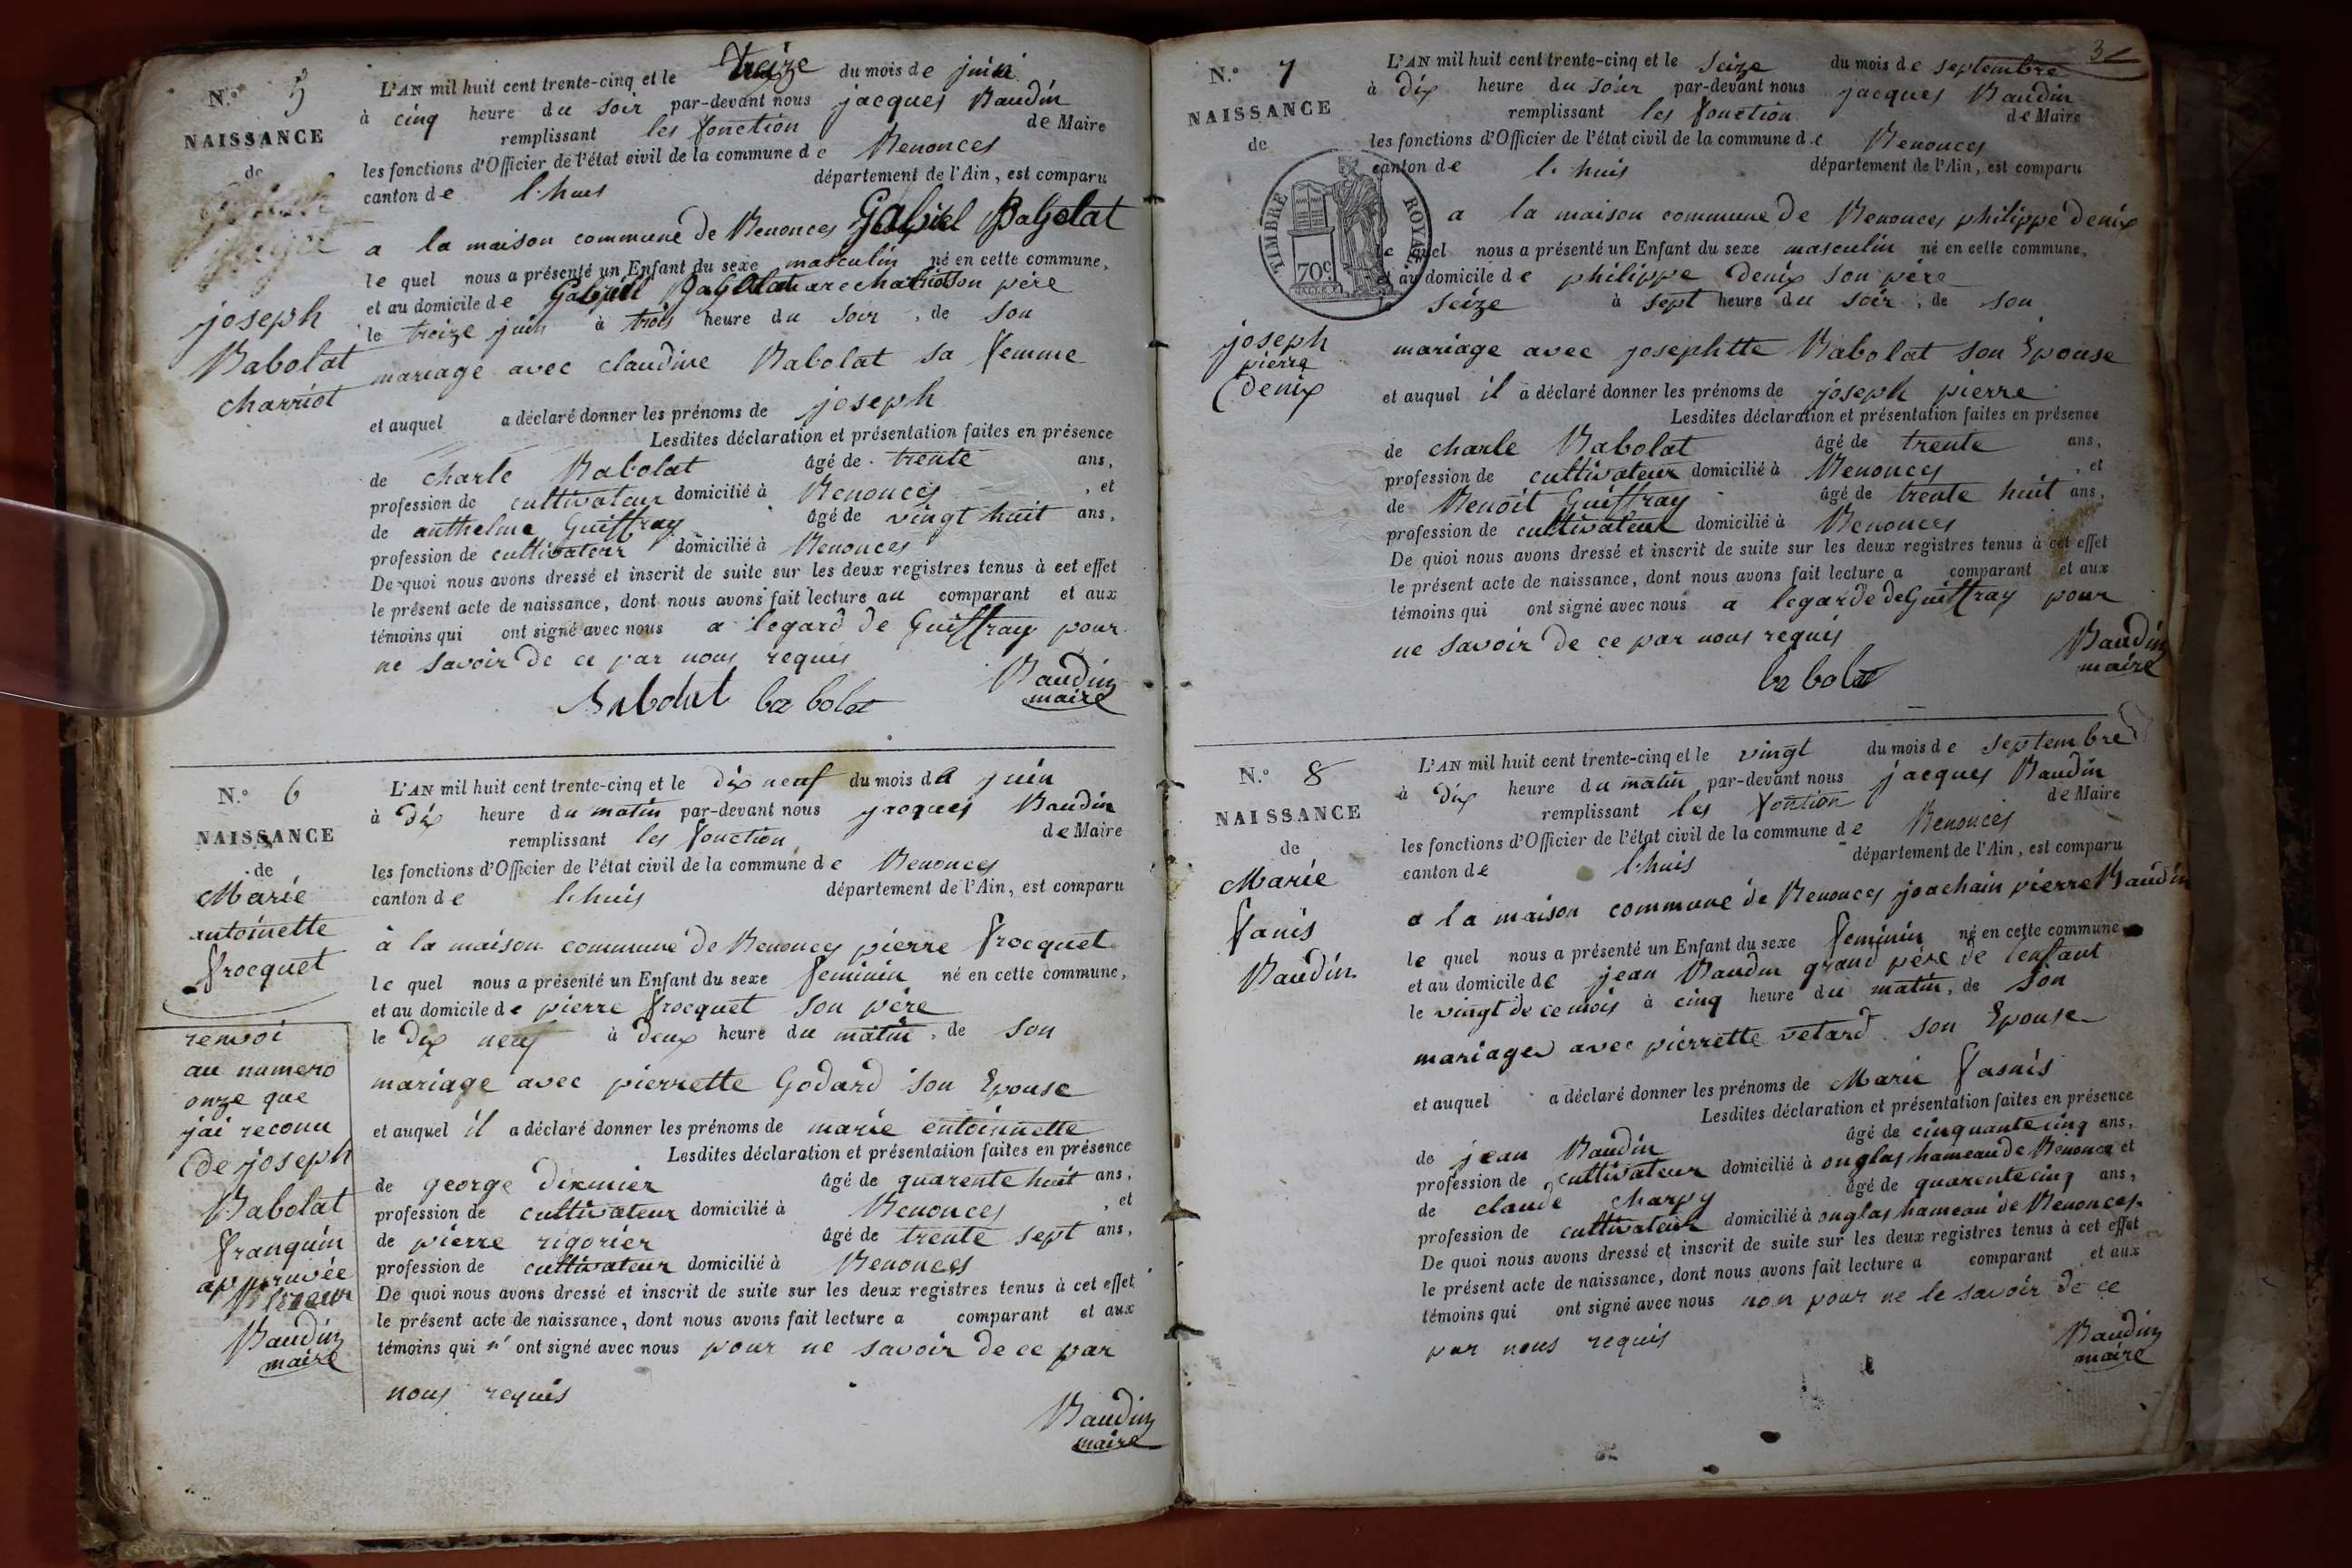 N.° 5
NAISSANCE
de
joseph
Babolat
charriot
L'AN mil huit cent trente-cinq et le treize du mois de juin
à cinq heure du soir par-devant nous jacques Baudin
remplissant les fonction de Maire
les fonctions d'Officier de l'état civil de la commune de Benonces
canton de l.huis département de l'Ain, est comparu
a la maison commune de Benonces Gabriel Babolat
le quel nous a présenté un Enfant du sexe masculin né en cette commune,
et au domicile de Gabriel Babolat son père
le treize juin à trois heure du soir, de son
mariage avec claudine Babolat sa femme
et auquel a déclaré donner les prénoms de joseph
Lesdites déclaration et présentation faites en présence
de charle Babolat âgé de trente ans,
profession de cultivateur domicilié à Benonces, et
de anthelme Guiffray âgé de vingt huit ans,
profession de cultivateur domicilié à Benonces
De quoi nous avons dressé et inscrit de suite sur les deux registres tenus à cet effet
le présent acte de naissance, dont nous avons fait lecture au comparant et aux
témoins qui ont signé avec nous a legard de Guiffray pour
ne savoir de ce par nous requis
Babolat babolat
Baudin
maire
N.° 6
NAISSANCE
de
Marie
antoinette
frocquet
renvoi
au numero
onze que
j'ai reconu
de joseph
Babolat
franquin
appruvée
Baudin
maire
L'AN mil huit cent trente-cinq et le dix neuf du mois de juin
à dix heure du matin par-devant nous jacques Baudin
remplissant les fonction de Maire
les fonctions d'Officier de l'état civil de la commune de Benonces
canton de l.huis département de l'Ain, est comparu
à la maison commune de Benonces pierre frocquet
le quel nous a présenté un Enfant du sexe feminin né en cette commune,
et au domicile de pierre frocquet son père
le dix neuf à deux heure du matin, de son
mariage avec pierrette Godard son Epouse
et auquel il a déclaré donner les prénoms de marie entoinnette
Lesdites déclaration et présentation faites en présence
de george âgé de quarente huit ans,
profession de cultivateur domicilié à Benonces, et
de pierre rigorier âgé de trente sept ans,
profession de cultivateur domicilié à Benonces
De quoi nous avons dressé et inscrit de suite sur les deux registres tenus à cet effet
le présent acte de naissance, dont nous avons fait lecture a comparant et aux
témoins qui n' ont signé avec nous pour ne savoir de ce par
nous requis
Baudin
maire
32
N.° 7
NAISSANCE
de
TIMBRE ROYAL
70c
joseph
pierre
denix
L'AN mil huit cent trente-cinq et le seize du mois de septembre
à dix heure du soir par-devant nous jacques Baudin
remplissant les fonction de Maire
les fonctions d'Officier de l'état civil de la commune d.e Benonces
canton de l. huis département de l'Ain, est comparu
a la maison commune de Benonces philippe denix
le quel nous a présenté un Enfant du sexe masculin né en cette commune,
et au domicile de philippe denix son père
le seize à sept heure du soir, de son
mariage avec josephtte Babolat son Epouse
et auquel il a déclaré donner les prénoms de joseph pierre
Lesdites déclaration et présentation faites en présence
de charle Babolat âgé de trente ans,
profession de cultivateur domicilié à Benonces, et
de Benoit Guiffray âgé de trente huit ans,
profession de cultivateur domicilié à Benonces
De quoi nous avons dressé et inscrit de suite sur les deux registres tenus à cet effet
le présent acte de naissance, dont nous avons fait lecture a comparant et aux
témoins qui ont signé avec nous a legarde de Guiffray pour
ne savoir de ce par nous requis
babolat
Baudin
maire
N.° 8
NAISSANCE
de
Marie
fanis
Baudin
L'AN mil huit cent trente-cinq et le vingt du mois de septembre
à dix heure du matin par-devant nous jacques Baudin
remplissant les fontion de Maire
les fonctions d'Officier de l'état civil de la commune de Benonces
canton de l.huis département de l'Ain, est comparu
a la maison commune de Benonces joachain pierre Baudin
le quel nous a présenté un Enfant du sexe feminin né en cette commune
et au domicile de jean Baudin grand père de lenfant
le vingt de ce mois à cinq heure du matin, de son
mariage avec pierrette vetard son Epouse
et auquel a déclaré donner les prénoms de Marie fasnis
Lesdites déclaration et présentation faites en présence
de jean Baudin âgé de cinquante cinq ans,
profession de cultivateur domicilié à onglas hameau de Benonce et
de claude charpy âgé de quarente cinq ans,
profession de cultivateur domicilié à onglas hameau de Benonces
De quoi nous avons dressé et inscrit de suite sur les deux registres tenus à cet effet
le présent acte de naissance, dont nous avons fait lecture a comparant et aux
témoins qui ont signé avec nous non pour ne le savoir de ce
par nous requis
Baudin
maire